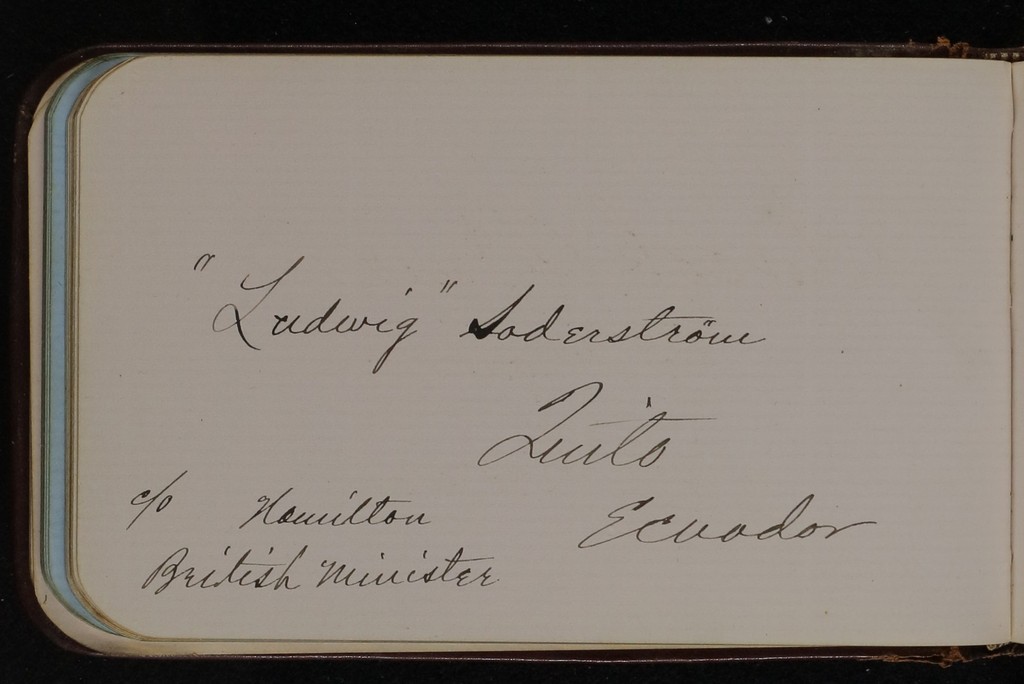 "Ludwig" Soderström
Quito
Ecuador
c/o Hamilton
British Minister